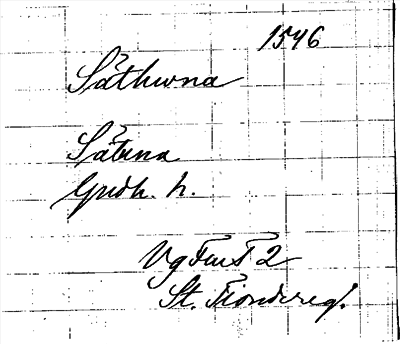 1546
Såthwna
Såtuna
Gudh. h.
VgFmT 2
St. Tiondereg.